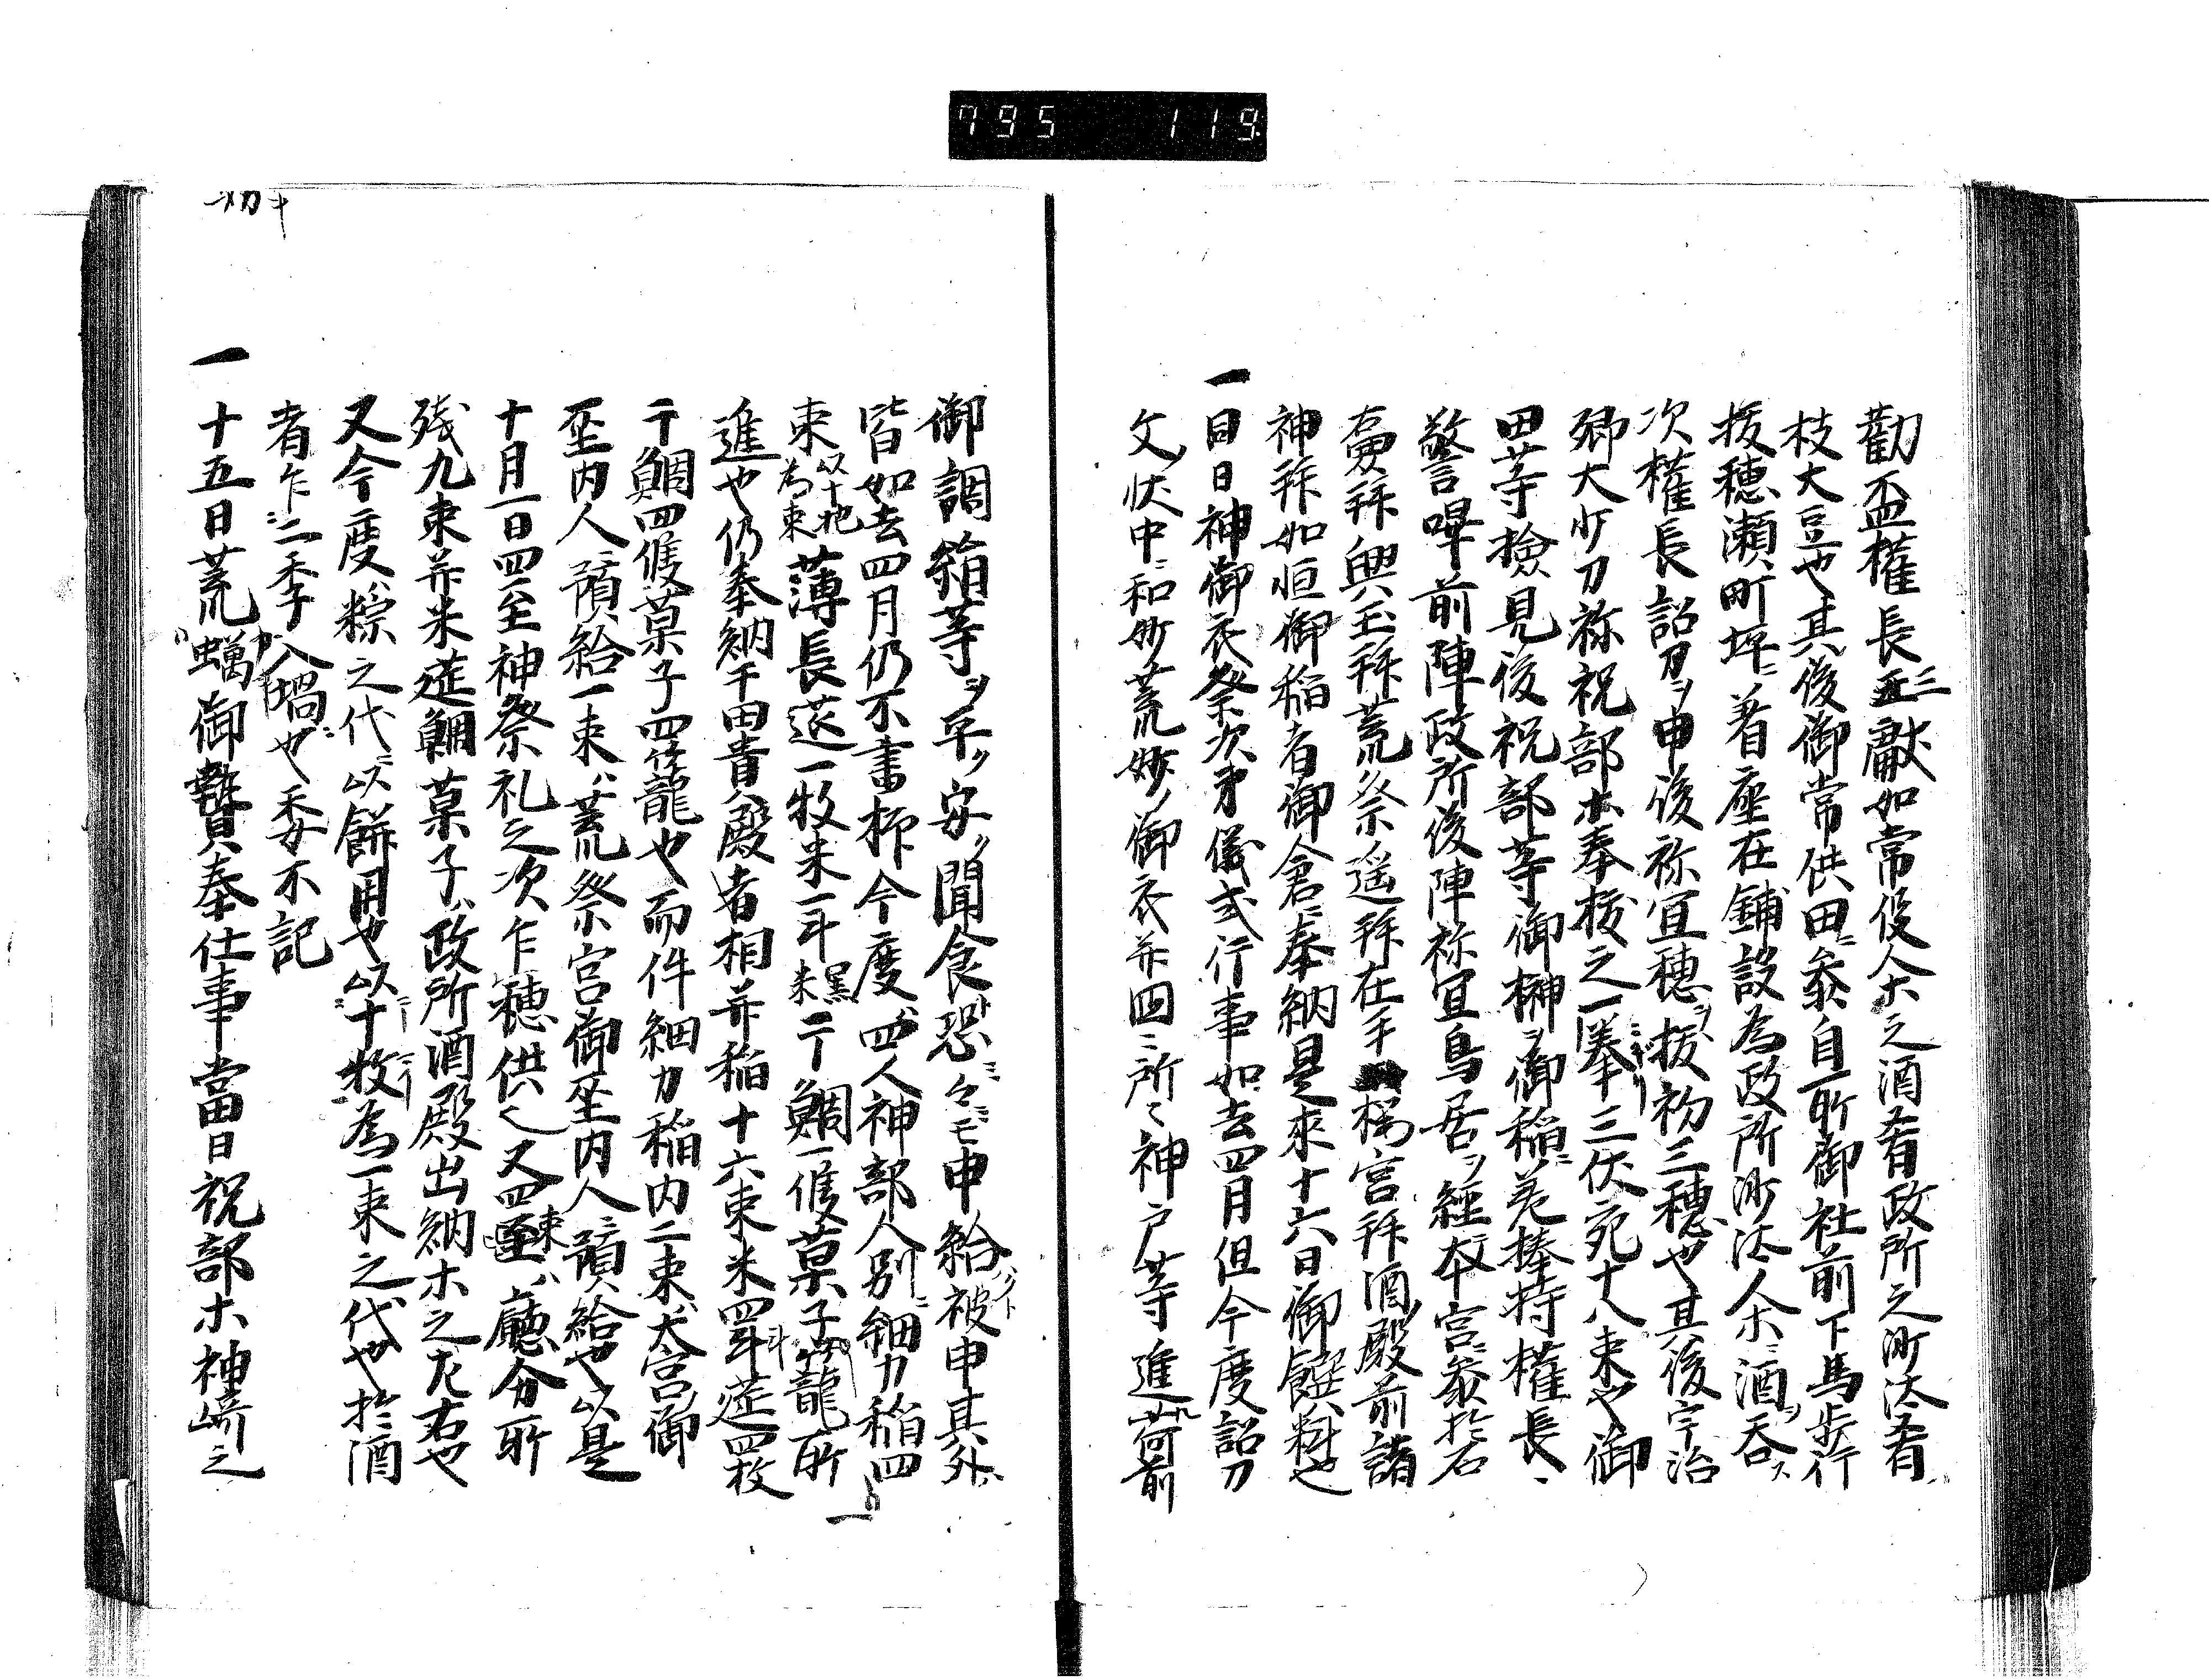 795 119
勸盃權長三献如常役人ホ之酒肴政所之沙汰肴
枝大豆也其後御常供田ニ参自所御社前下馬歩行
抜穂瀬町坪ニ着座在鋪設為政所沙汰人ホニ酒ヲ呑ス
次權長詔刀ヲ申後祢宜穂ヲ抜初三穂也其後宇治
郷大少刀祢祝部ホ奉抜之一奉三伏宛十八束也御
田等撿見後祝部等御榊ヲ御稲ニ差捧持權長ヽ
警嗶前陣政所後陣祢宜鳥居ヲ經本宮ニ参於石
壷拜興玉拜荒祭ノ遥拜在手桜宮拜酒殿前諸
神拜如恒御稲者御倉ニ奉納是来十六日御饌料也
一同日神御衣祭次第儀式行事如去四月但今度詔刀
文状中ニ和妙荒妙ノ御衣并四ニ所ニ神戸等進荷前
御調箱等ヲ平ノ安ノ聞食恐ミ々ミモ申給被申其外
皆如去四月仍不書抑今度ハ四人神部人別ニ細力稲四
束以十把為束薄長莚一枚米一斗黒米干鯛一隻菓子籠所
進也仍奉納千田貴殿者相并稲十六束米四斗莚四枚
干鯛四隻菓子四籠也而件細力稲内二束ハ大宮御
坐内人ニ預給一束ハ荒祭宮御坐内人ニ預給也以是
十月一日四至神祭礼之次乍穂供之又四束ハ廳分所
残九束并米莚鯛菓子ハ政所酒殿出納ホ之左右也
又今度ハ粽之代ニ以餅用也以十枚為一束之代也於酒
者乍二季八堝也委不記
一十五日荒蠣御贄奉仕事當日祝部ホ神崎之